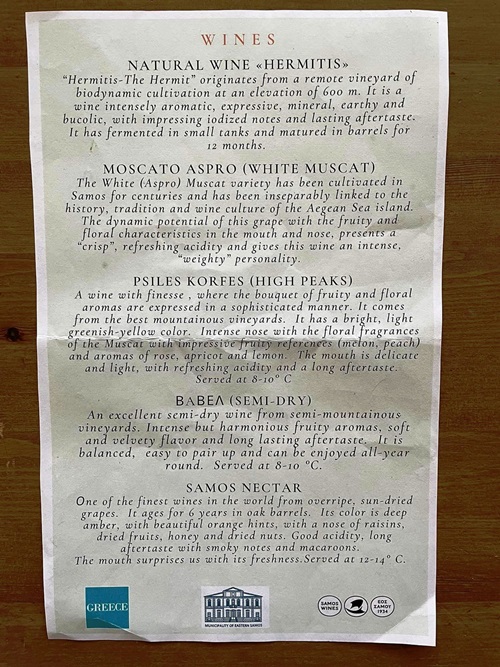 WINES
NATURAL WINE «HERMITIS»
“Hermitis-The Hermit” originates from a remote vineyard of
biodynamic cultivation at an elevation of 600 m. It is a
wine intensely aromatic, expressive, mineral, earthy and
bucolic, with impressing iodized notes and lasting aftertaste.
It has fermented in small tanks and matured in barrels for
12 months.
MOSCATO ASPRO (WHITE MUSCAT)
The White (Aspro) Muscat variety has been cultivated in
Samos for centuries and has been inseparably linked to the
history, tradition and wine culture of the Aegean Sea island.
The dynamic potential of this grape with the fruity and
floral characteristics in the mouth and nose, presents a
“crisp”, refreshing acidity and gives this wine an intense,
“weighty” personality.
PSILES KORFES (HIGH PEAKS)
A wine with finesse , where the bouquet of fruity and floral
aromas are expressed in a sophisticated manner. It comes
from the best mountainous vineyards. It has a bright, light
greenish-yellow color. Intense nose with the floral fragrances
of the Muscat with impressive fruity references (melon, peach)
and aromas of rose, apricot and lemon. The mouth is delicate
and light, with refreshing acidity and a long aftertaste.
Served at 8-10° C
ΒΑΒΕΛ (SEMI-DRY)
An excellent semi-dry wine from semi-mountainous
vineyards. Intense but harmonious fruity aromas, soft
and velvety flavor and long lasting aftertaste. It is
balanced, easy to pair up and can be enjoyed all-year
round. Served at 8-10 °C.
SAMOS NECTAR
One of the finest wines in the world from overripe, sun-dried
grapes. It ages for 6 years in oak barrels. Its color is deep
amber, with beautiful orange hints, with a nose of raisins,
dried fruits, honey and dried nuts. Good acidity, long
aftertaste with smoky notes and macaroons.
The mouth surprises us with its freshness.Served at 12-14° C.
GREECE
MUNICIPALITY OF EASTERN SAMOS
SAMOS
WINES
ΕΟΣ
ΣΑΜΟΥ
1934